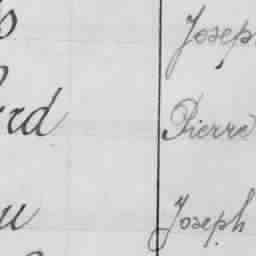 Joseph
rd Pierre
u Joseph